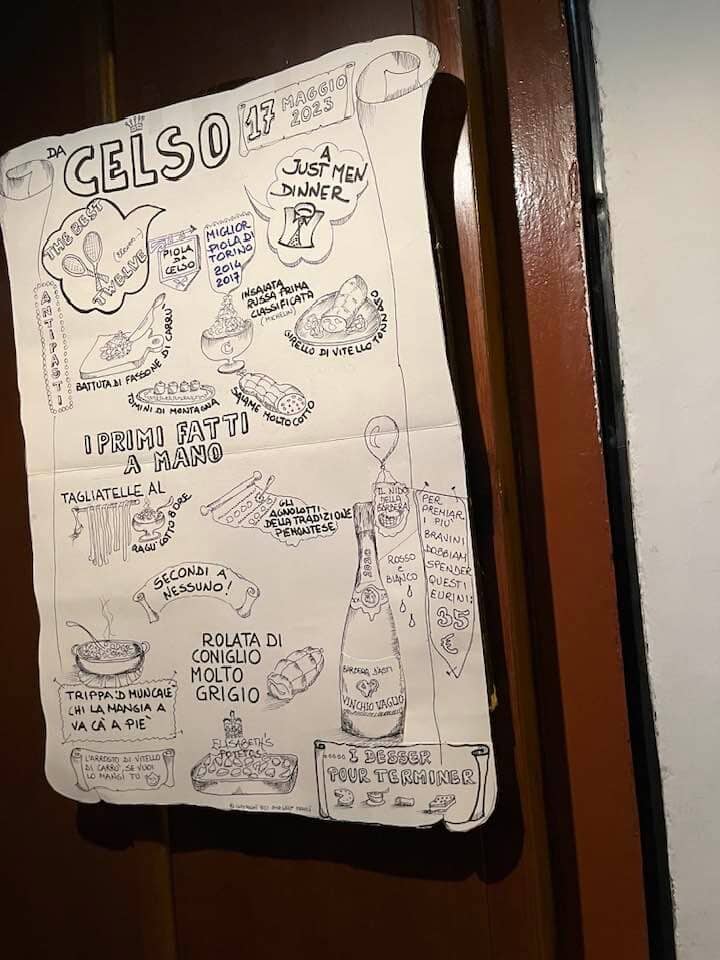 DA
CELSO
17
MAGGIO
2023
A
JUST MEN
DINNER
THE BEST
TWELVE
PIOLA
DA
CELSO
MIGLIOR
PIOLA DI
TORINO
2014
2017
ANTIPASTI
BATTUTA DI FASSONE DI CARRÙ
INSALATA
RUSSA PRIMA
CLASSIFICATA
(MICHELIN)
GIRELLO DI VITELLO TONNATO
TOMINI DI MONTAGNA
SALAME MOLTO COTTO
I PRIMI FATTI
A MANO
TAGLIATELLE AL
RAGÙ COTTO 8 ORE
GLI
AGNOLOTTI
DELLA TRADIZIONE
PIEMONTESE
IL NIDO
DELLA
BARBERA
ROSSO
E
BIANCO
PER
PREMIAR
I PIÙ
BRAVINI
DOBBIAM
SPENDER
QUESTI
EURINI:
35
€
SECONDI A
NESSUNO!
TRIPPA 'D MUNCALÉ
CHI LA MANGIA A
VA CÀ A PIÈ
ROLATA DI
CONIGLIO
MOLTO
GRIGIO
BARBERA D'ASTI
VINCHIO VAGLIO
L'ARROSTO DI VITELLO
DI CARRÙ, SE VUOI
LO MANGI TU
ELISABETH'S
POTETOS
..... I DESSER
POUR TERMINER